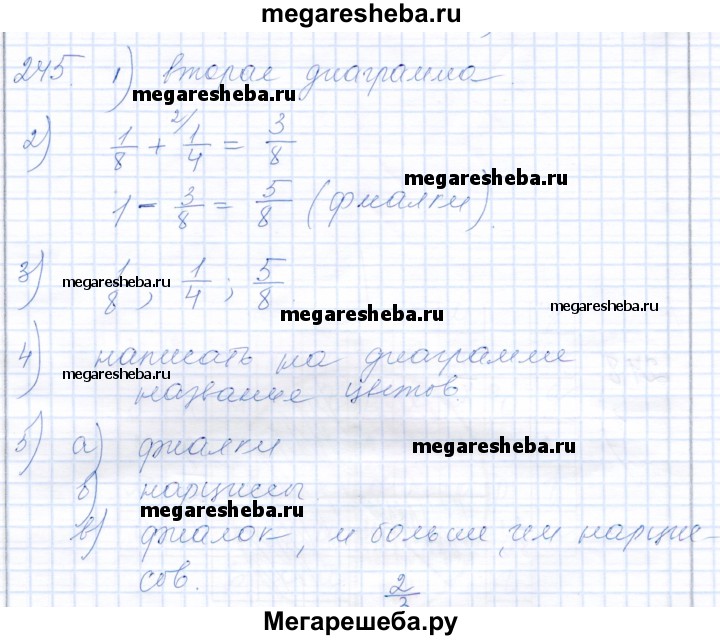 megaresheba.ru
245. 1) вторая диаграмма.
megaresheba.ru
2) 1/8 + 2/ 1/4 = 3/8
megaresheba.ru
1 - 3/8 = 5/8 (фиалки).
3) 1/8 ; 1/4 ; 5/8.
megaresheba.ru
megaresheba.ru
4) написать на диаграмме
megaresheba.ru
название цветов.
5) а) фиалки
megaresheba.ru
б) нарциссы.
megaresheba.ru
в) фиалок, и больше, чем нарцис-
сов.
2/3
Мегарешеба.ру